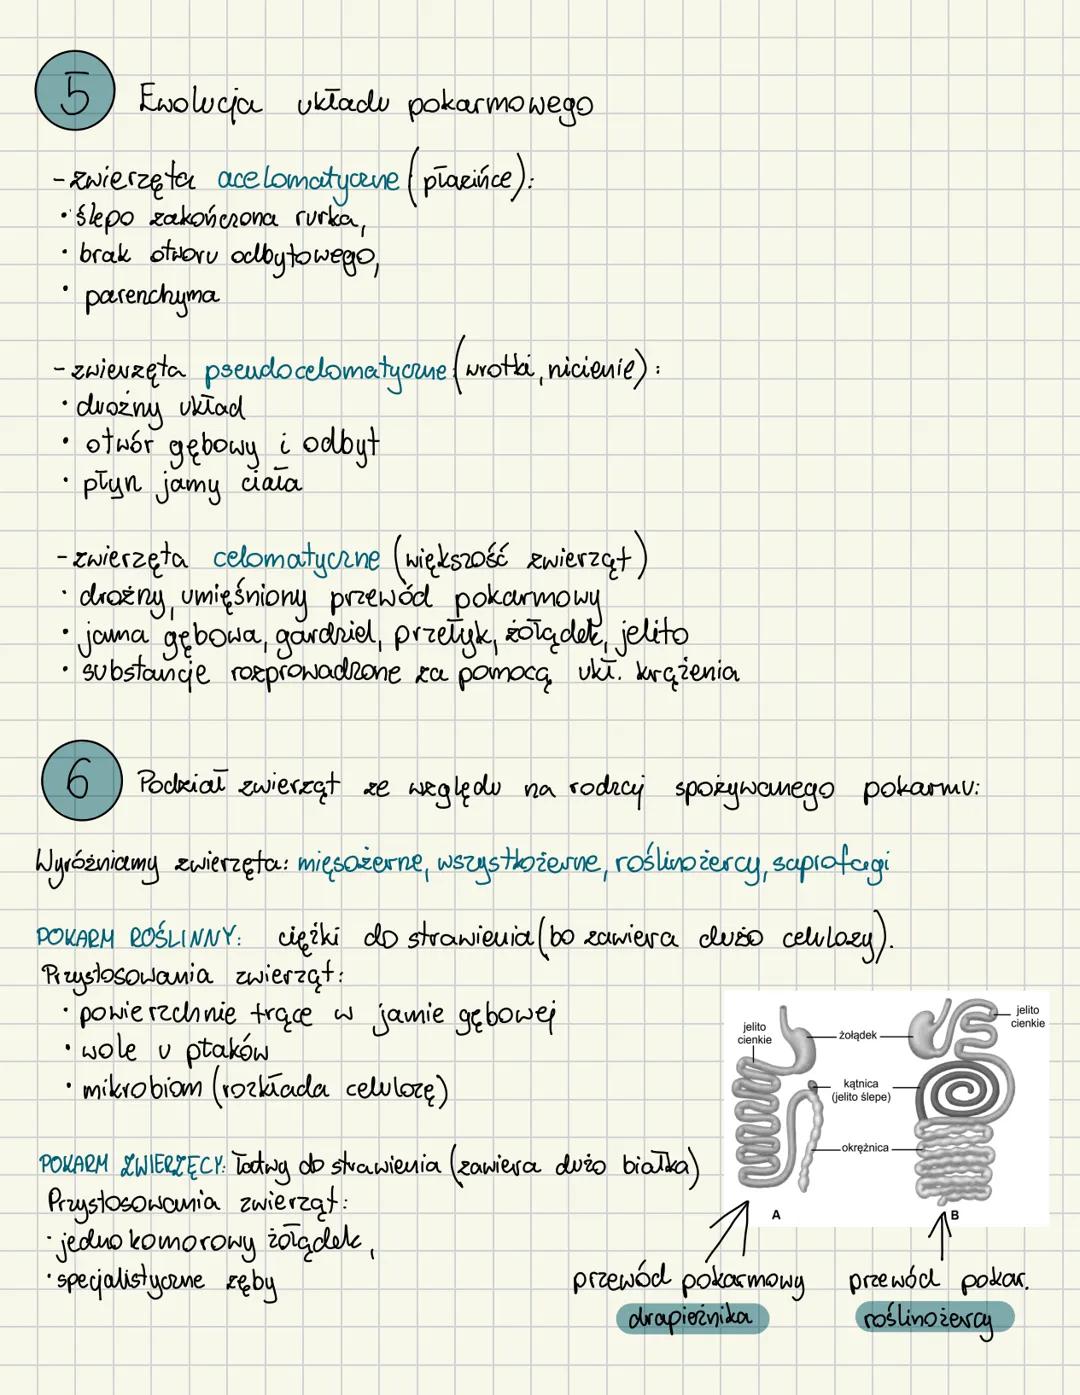 5 Ewolucja układu pokarmowego
- zwierzęta acelomatyczne (płazińce):
• ślepo zakończona rurka,
• brak otworu odbytowego,
• parenchyma
- zwierzęta pseudocelomatyczne (wrotki, nicienie):
• drożny układ
• otwór gębowy i odbyt
• płyn jamy ciała
- zwierzęta celomatyczne (większość zwierząt)
• drożny, umięśniony przewód pokarmowy
• jama gębowa, gardziel, przełyk, żołądek, jelito
• substancje rozprowadzone za pomocą ukł. krążenia
6 Podział zwierząt ze względu na rodzaj spożywanego pokarmu:
Wyróżniamy zwierzęta: mięsożerne, wszystkożerne, roślinożercy, saprofagi
POKARM ROŚLINNY: ciężki do strawienia (bo zawiera dużo celulozy).
Przystosowania zwierząt:
• powierzchnie trące w jamie gębowej
• wole u ptaków
• mikrobiom (rozkłada celulozę)
POKARM ZWIERZĘCY: łatwy do strawienia (zawiera dużo białka)
Przystosowania zwierząt:
• jednokomorowy żołądek,
• specjalistyczne zęby
jelito
cienkie
żołądek
jelito
cienkie
kątnica
(jelito ślepe)
okrężnica
A
B
przewód pokarmowy
drapieżnika
przewód pokar.
roślinożercy